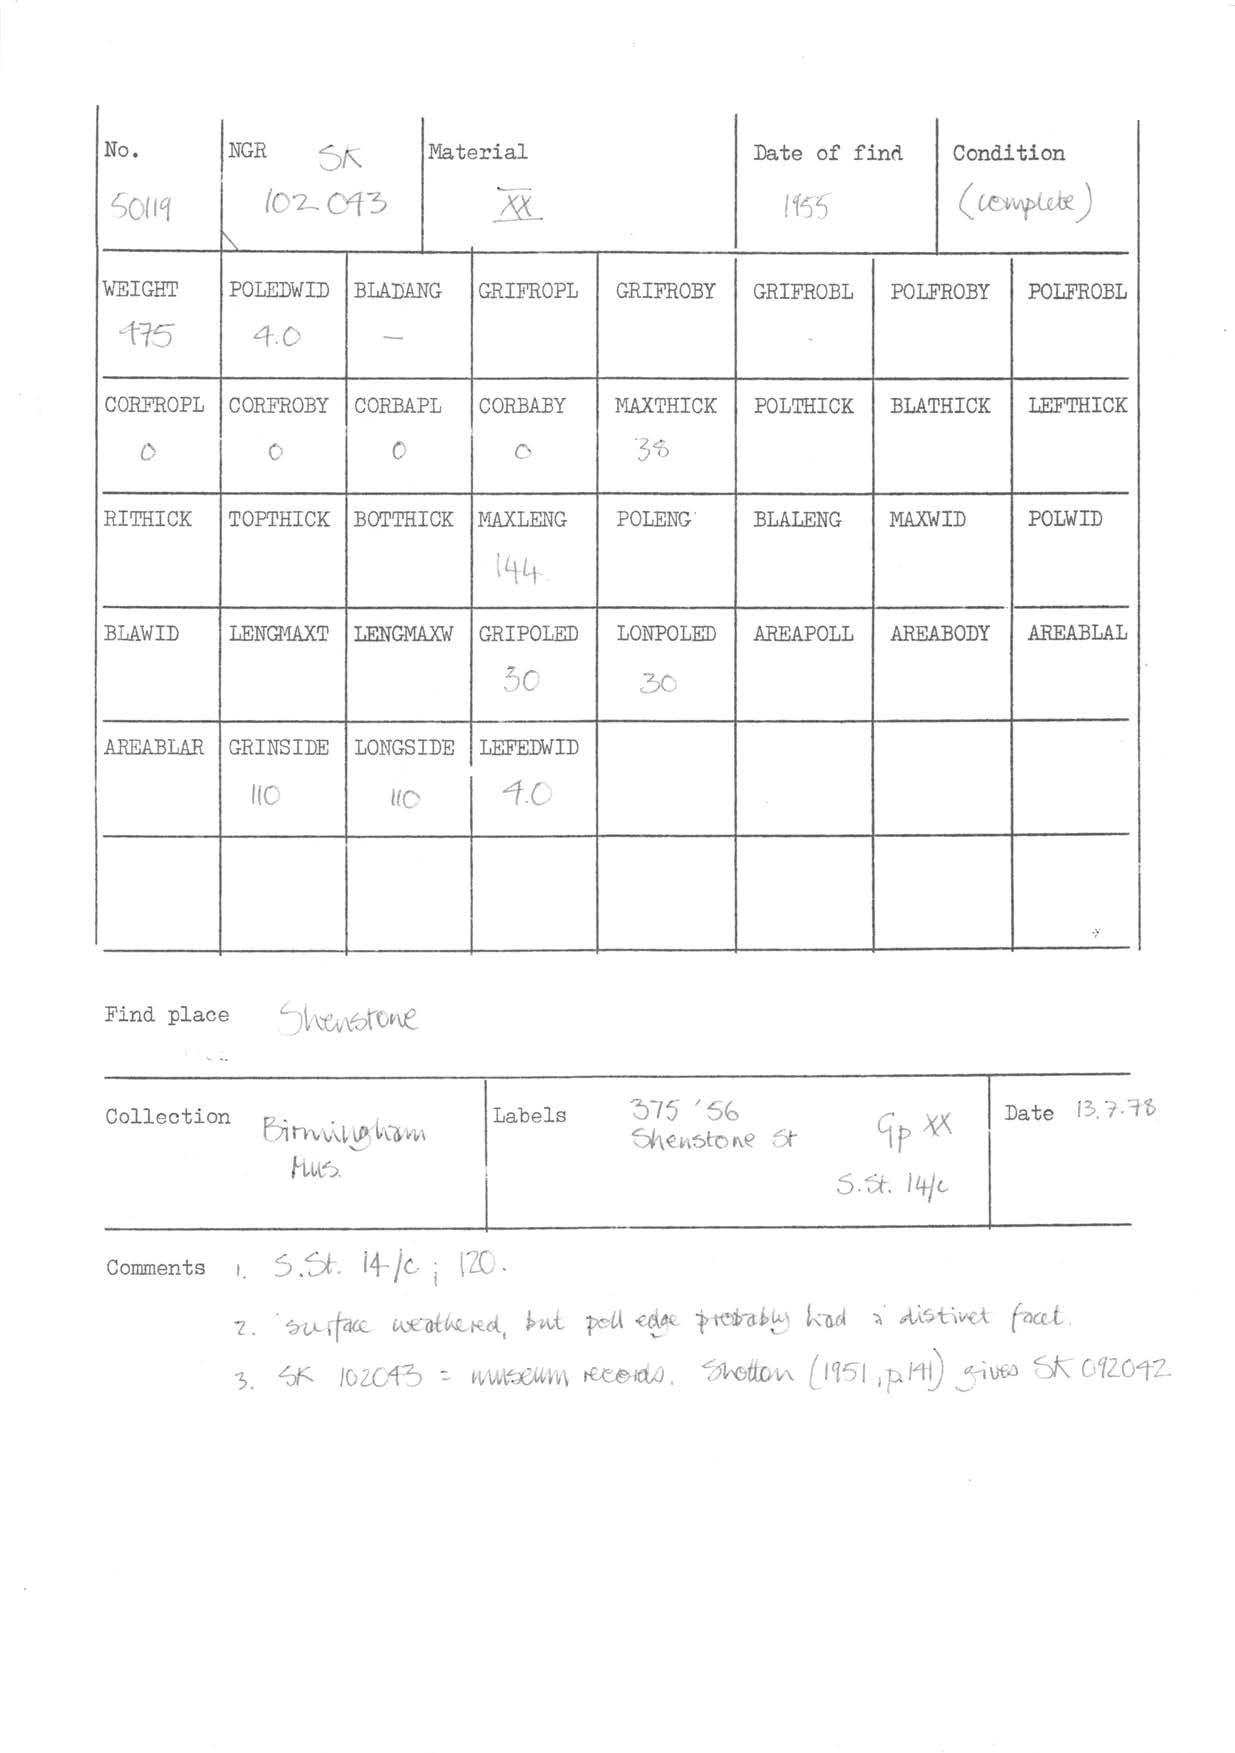 No. NGR SK Material Date of find Condition
50119 102 043 XX 1955 (complete)
WEIGHT POLEDWID BLADANG GRIFROPL GRIFROBY GRIFROBL POLFROBY POLFROBL
475 4.0 —
CORFROPL CORFROBY CORBAPL CORBABY MAXTHICK POLTHICK BLATHICK LEFTHICK
0 0 0 0 38
RITHICK TOPTHICK BOTTHICK MAXLENG POLENG BLALENG MAXWID POLWID
144
BLAWID LENGMAXT LENGMAXW GRIPOLED LONPOLED AREAPOLL AREABODY AREABLAL
30 30
AREABLAR GRINSIDE LONGSIDE LEFEDWID
110 110 4.0
Find place Shenstone
Collection Birmingham Mus.
Labels 375 '56
Shenstone St Gp XX
S.St. 14/c
Date 13.7.78
Comments 1. S.St. 14/c ; 120.
2. surface weathered, but poll edge probably had a distinct facet.
3. SK 102043 = museum records. Shotton (1951, p.141) gives SK 092042